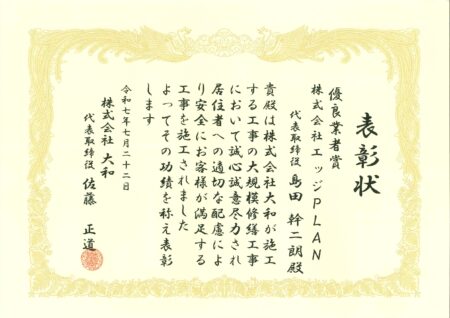 表彰状
優良業者賞
株式会社エッジPLAN
代表取締役 島田 幹二朗殿
貴殿は株式会社大和が施工
する工事の大規模修繕工事
において誠心誠意尽力され
居住者への適切な配慮によ
り安全にお客様が満足する
工事を施工されました
よってその功績を称え表彰
します
令和七年七月二十二日
株式会社 大和
代表取締役 佐藤 正道